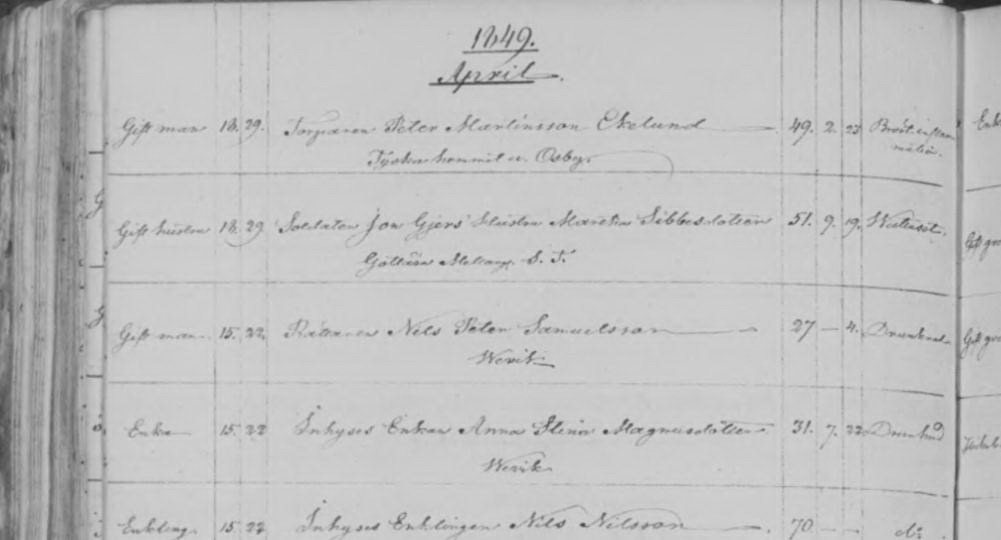 1849.
April.
Gift man 18. 29. Torparen Peter Martinsson Ekelund 49. 2. 23 Bröst inflam
mation.
Osby.
Gift hustru 18 29 Soldaten Jon Gjers hustru Sibbesdotter 51. 9. 19. Wattusot.
S. T.
Gift man 15. 22. Rättaren Nels Peter Samuelsson 27 — 4. Drunknad
Werik
Enka 15. 22 Inhyses Enkan Anna Stina Magnusdotter 31. 7. 22 Drunknad
Werik
Enkling 15. 22 Inhyses Enklingen Nils Nilsson 70 — — do.